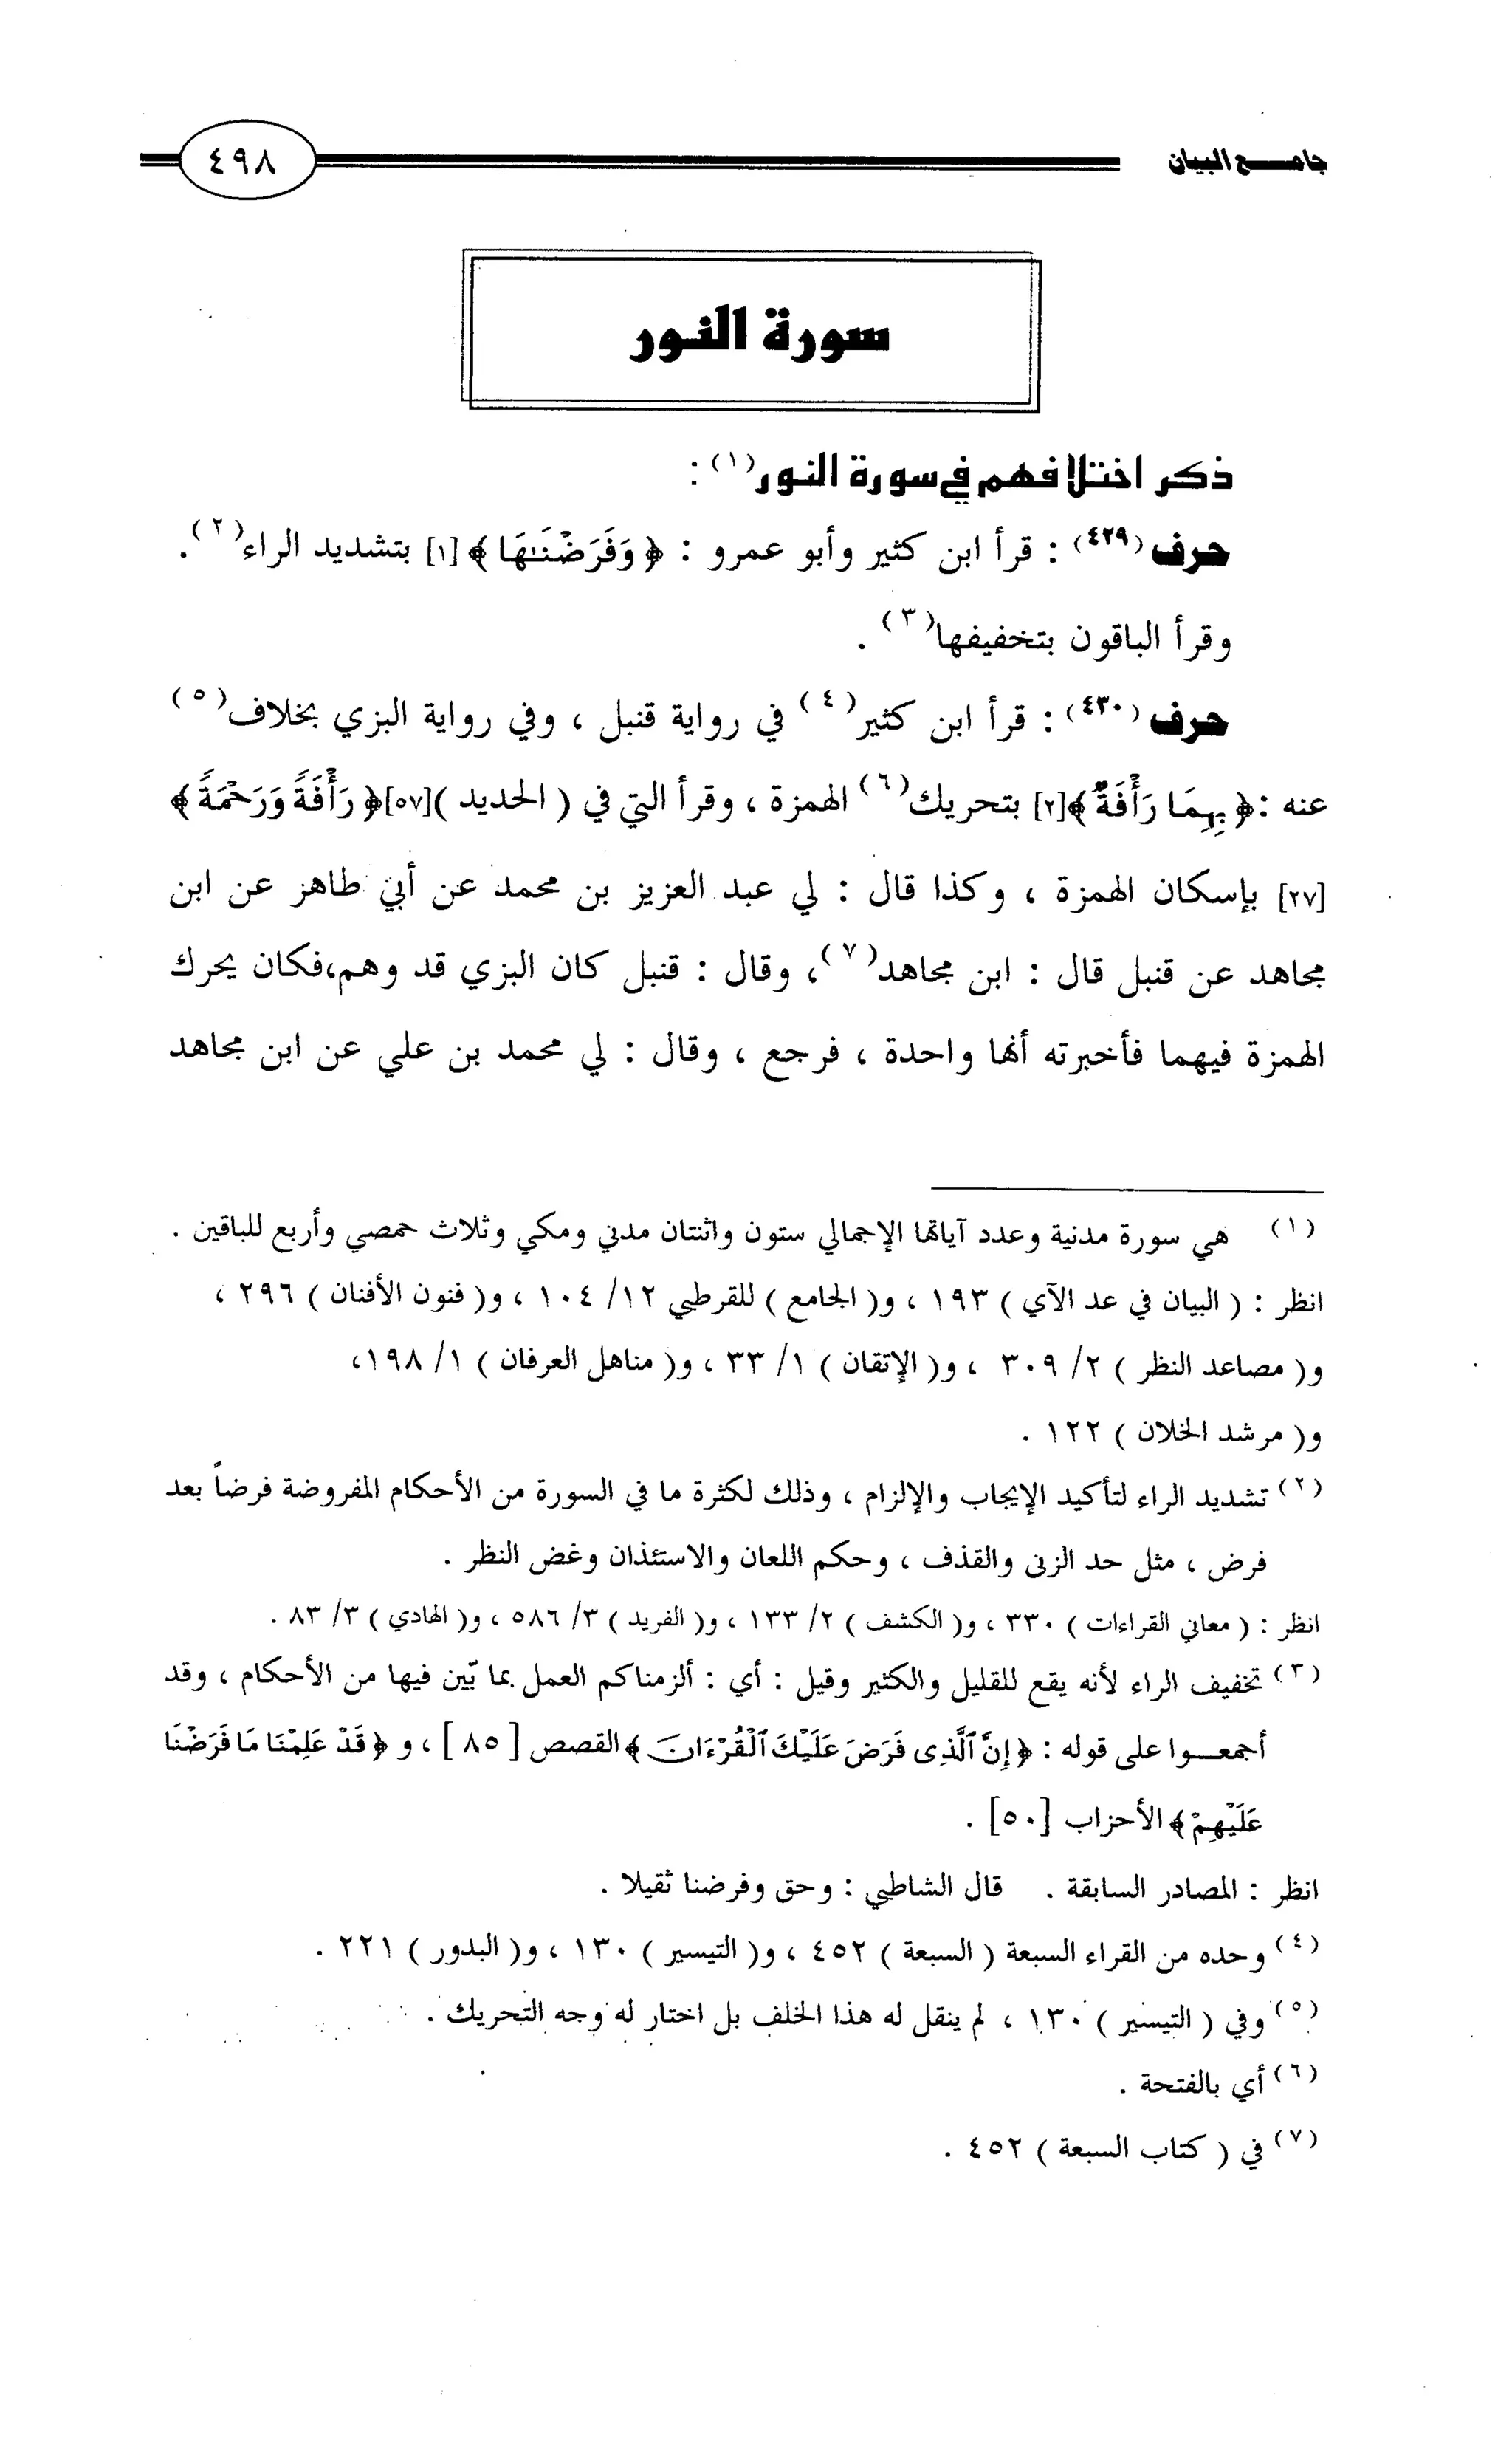 جامع البيان
٤٩٨
سورة النور
ذكر اختلافهم في سورة النور(١) :
حرف(٤٢٩) : قرأ ابن كثير وأبو عمرو : ﴿ وَفَرَضْنَٰهَا ﴾[١] بتشديد الراء(٢).
وقرأ الباقون بتخفيفها(٣) .
حرف(٤٣٠) : قرأ ابن كثير(٤) في رواية قنبل ، وفي رواية البزي بخلاف(٥)
عنه :﴿ بِهِمَا رَأَفَةٌ ﴾[٢] بتحريك(٦) الهمزة ، وقرأ التي في ( الحديد )[٥٧]﴿ رَأْفَةً وَرَحْمَةً ﴾
[٢٧] بإسكان الهمزة ، وكذا قال : لي عبد العزيز بن محمد عن أبي طاهر عن ابن
مجاهد عن قنبل قال : ابن مجاهد(٧)، وقال : قنبل كان البزي قد وهم،فكان يحرك
الهمزة فيهما فأخبرته أنها واحدة ، فرجع ، وقال : لي محمد بن علي عن ابن مجاهد
(١) هي سورة مدنية وعدد آياتها الإجمالي ستون واثنتان مدني ومكي وثلاث حمصي وأربع للباقين .
انظر : ( البيان في عد الآي ) ١٩٣ ، و( الجامع ) للقرطبي ١٢/ ١٠٤ ، و( فنون الأفنان ) ٢٩٦ ،
و( مصاعد النظر ) ٢/ ٣٠٩ ، و( الإتقان ) ١/ ٣٣ ، و( مناهل العرفان ) ١/ ١٩٨،
و( مرشد الخلان ) ١٢٢ .
(٢) تشديد الراء لتأكيد الإيجاب والإلزام ، وذلك لكثرة ما في السورة من الأحكام المفروضة فرضاً بعد
فرض ، مثل حد الزنى والقذف ، وحكم اللعان والاستئذان وغض النظر .
انظر : ( معاني القراءات ) ٣٣٠ ، و( الكشف ) ٢/ ١٣٣ ، و( الفريد ) ٣/ ٥٨٦ ، و( الهادي ) ٣/ ٨٣ .
(٣) تخفيف الراء لأنه يقع للقليل والكثير وقيل : أي : ألزمناكم العمل بما بّين فيها من الأحكام ، وقد
أجمعوا على قوله : ﴿ إِنَّ ٱلَّذِى فَرَضَ عَلَيْكَ ٱلْقُرْءَانَ ﴾ القصص [ ٨٥ ] ، و ﴿ قَدْ عَلِمْنَا مَا فَرَضْنَا
عَلَيْهِمْ ﴾ الأحزاب [٥٠] .
انظر : المصادر السابقة . قال الشاطبي : وحق وفرضنا ثقيلا .
(٤) وحده من القراء السبعة ( السبعة ) ٤٥٢ ، و( التيسير ) ١٣٠ ، و( البدور ) ٢٢١ .
(٥) وفي ( التيسير ) ١٣٠ ، لم ينقل له هذا الخلف بل اختار له وجه التحريك .
(٦) أي بالفتحة .
(٧) في ( كتاب السبعة ) ٤٥٢ .